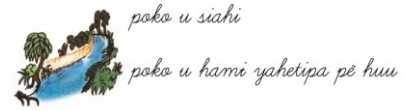 poko u siahi
poko u hamɨ yahetipa pë huu